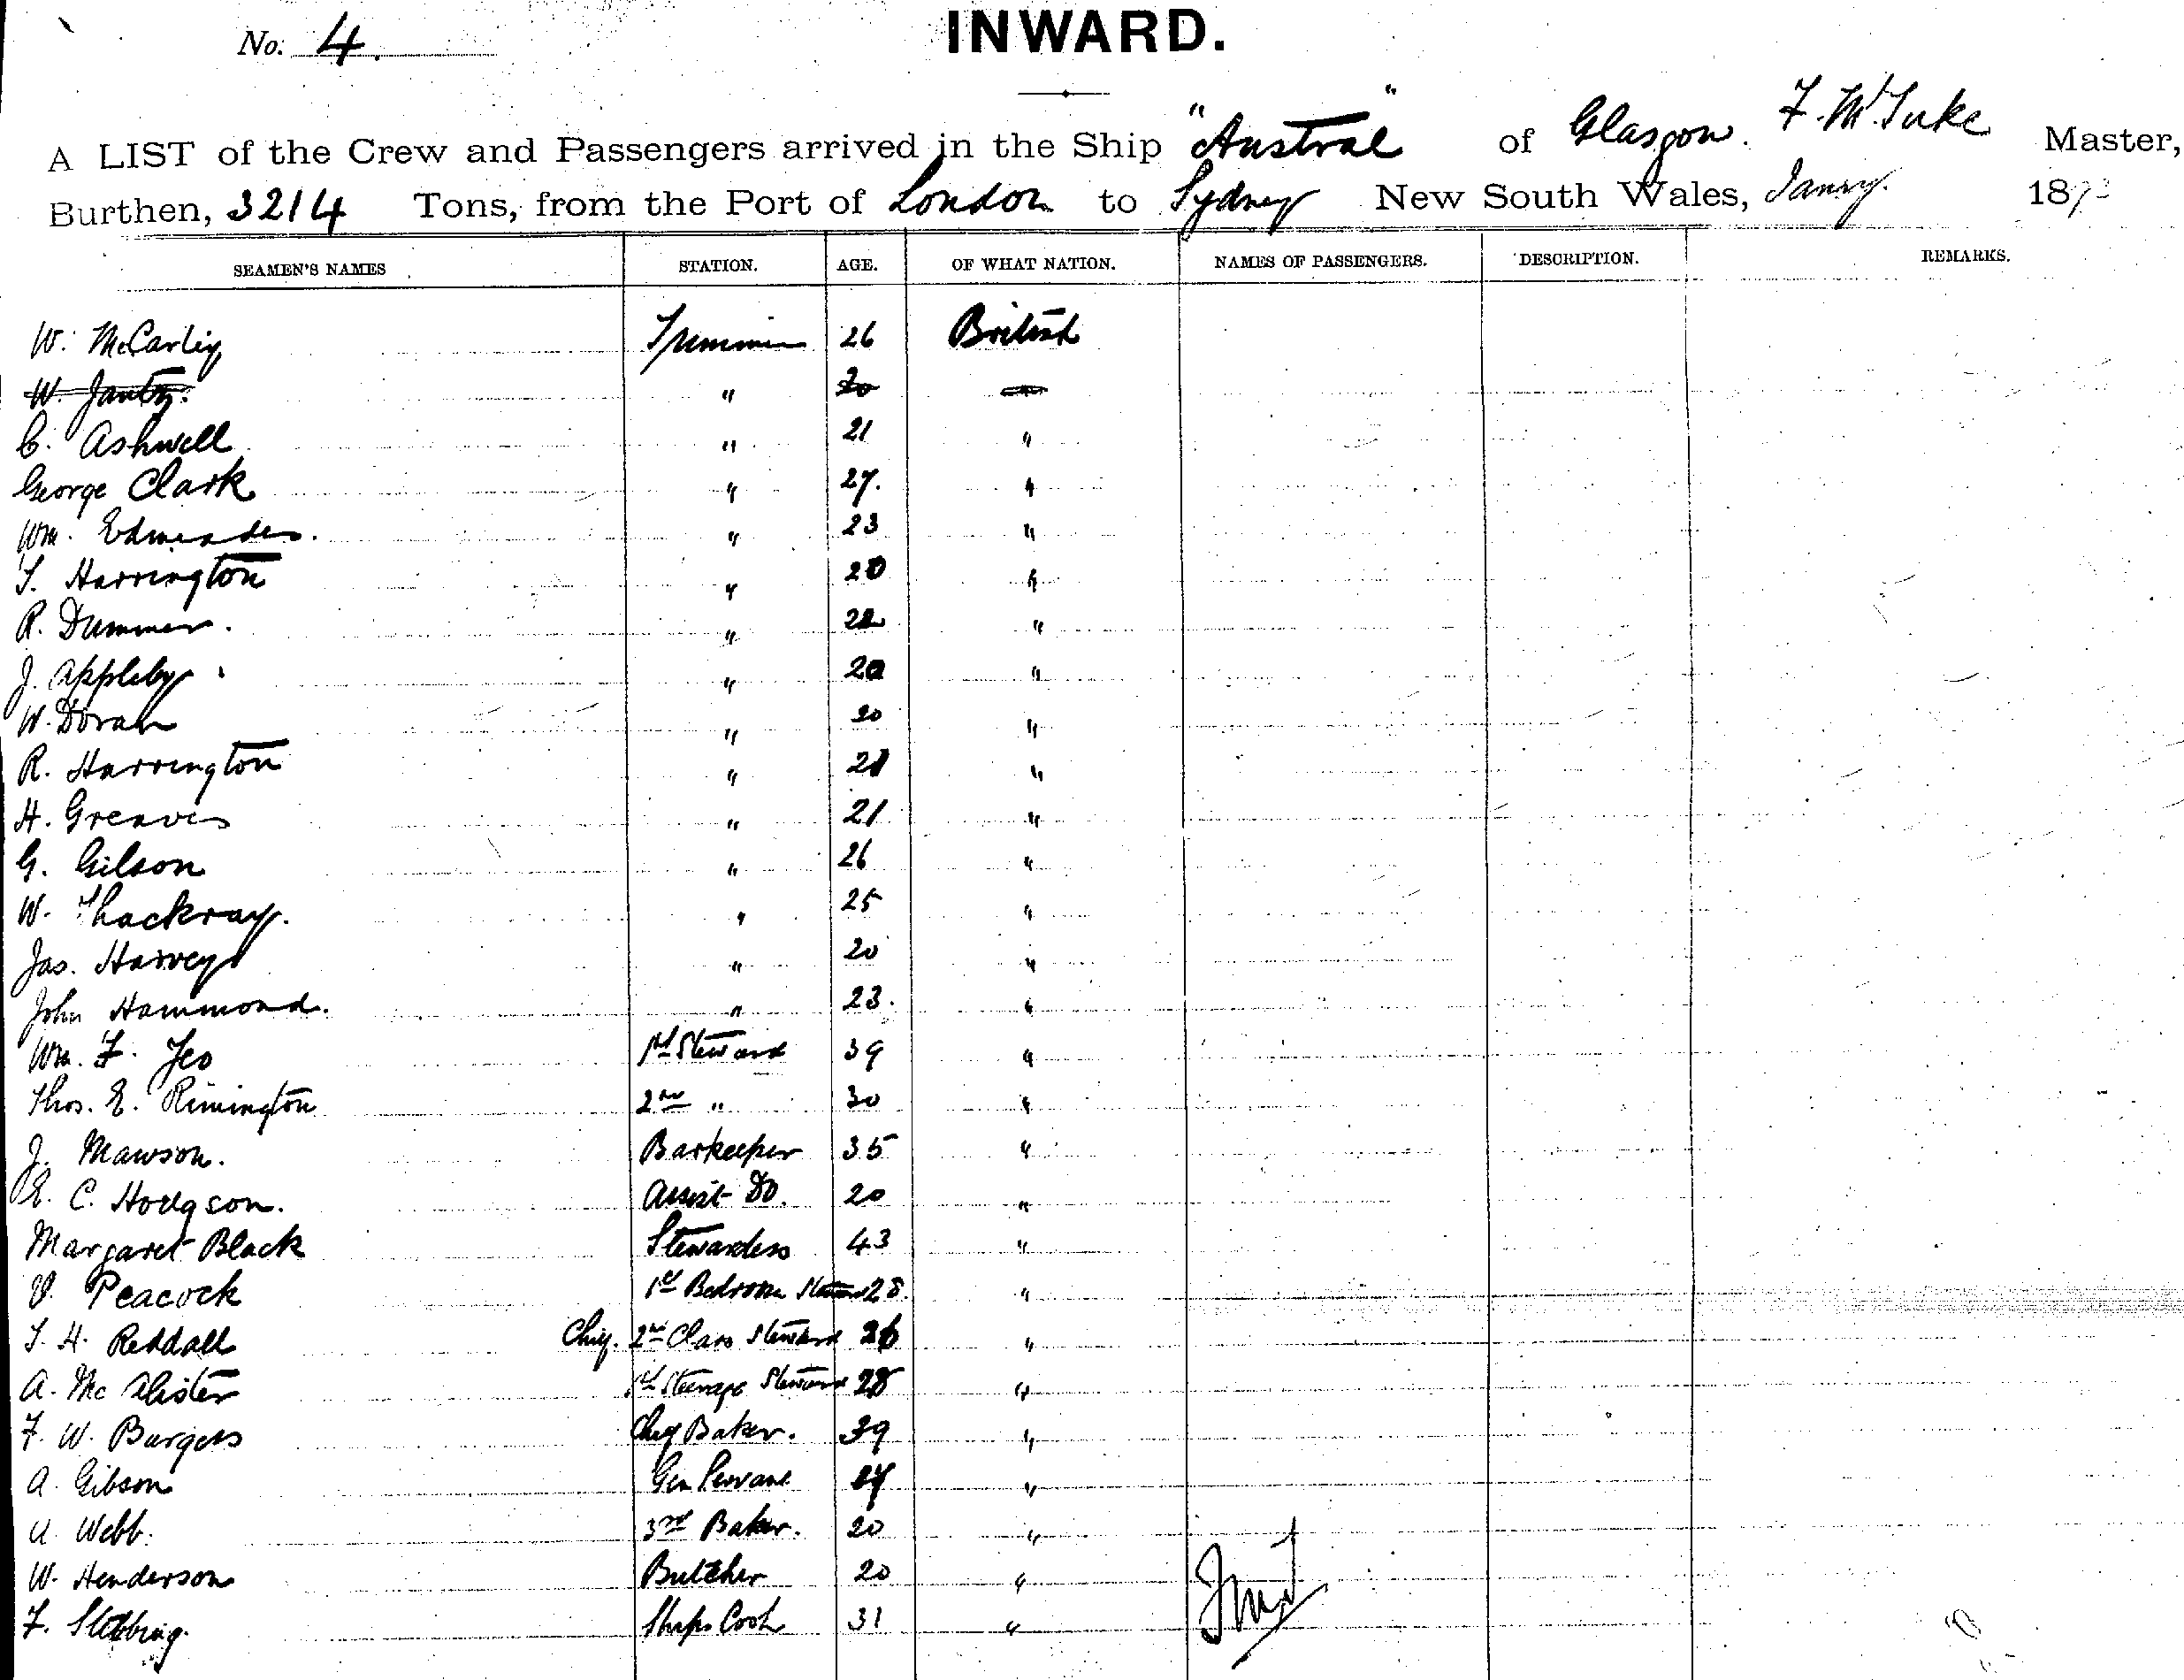 No. 4.
INWARD.
A LIST of the Crew and Passengers arrived in the Ship "Austral" of Glasgow. Master,
Burthen, 3214 Tons, from the Port of London to Sydney New South Wales, Jany. 18
SEAMEN'S NAMES STATION. AGE. OF WHAT NATION. NAMES OF PASSENGERS. DESCRIPTION. REMARKS.
W. McCarley 26 British
W. " 20 "
C. Ashwell " 21 "
George Clark " 27. "
Wm. " 23 "
T. Harrington " 20 "
R. Dummer. " 22 "
J. Appleby " 20 "
W. Doran " 20 "
R. Harrington " 21 "
H. Greaves " 21 "
G. Gilson " 26 "
W. Thackray. " 25 "
Jas. Harvey " 20 "
John Hammond. " 23. "
Wm. F. Yeo 1st Steward 39 "
Thos. E. Rimington 2nd " 30 "
J. Mawson. Barkeeper 35 "
E. C. Hodgson. Assist Do. 20 "
Margaret Black Stewardess 43 "
V. Peacock 1st Bedroom Steward 28 "
T. H. Reddall Chief. 2nd Class Steward 26 "
A. McAlister 1st Steerage Steward 28 "
F. W. Burgess Chief Baker. 39 "
A. Gibson Gen Servant "
A. Webb. 3rd Baker. 20 "
W. Henderson Butcher 20 "
F. Stebbing. Ships Cook 31 "